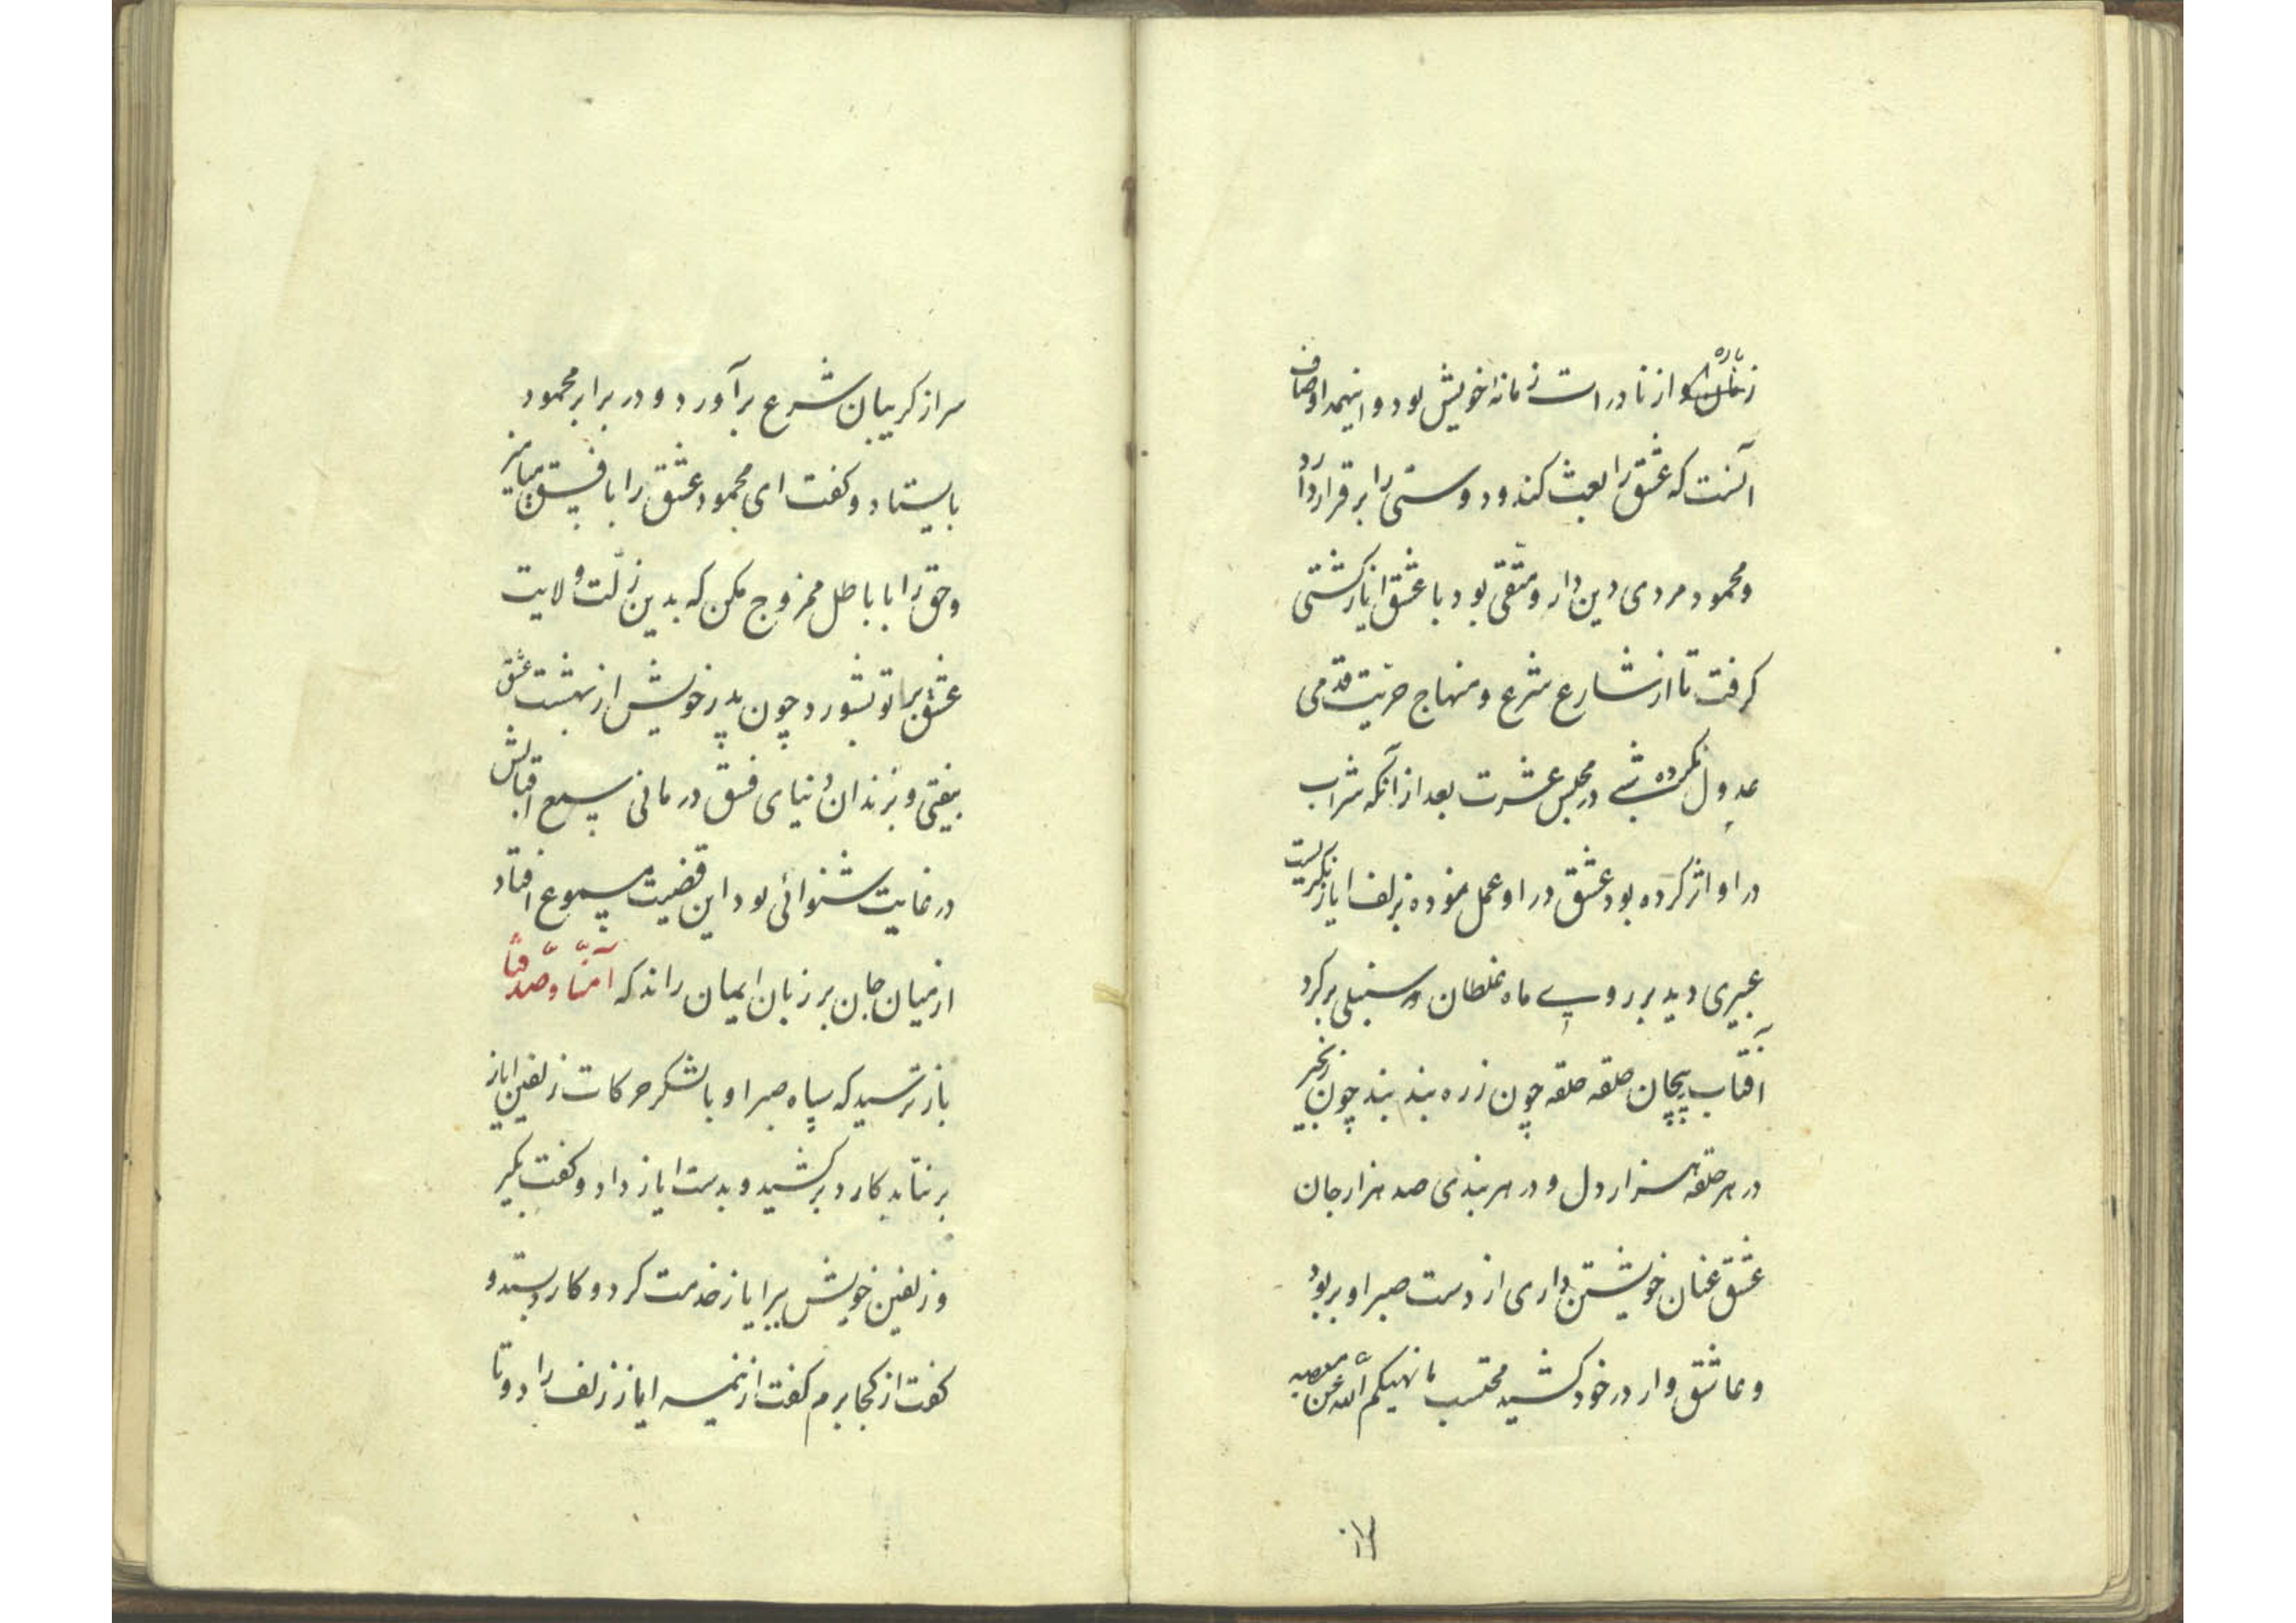 و از نادرات زمانه خویش بود و اینهمه اوصاف
آنست که عشق را بعث کند و دوستی را بر قرار دارد
و محمود مردی دین دار و متقی بود با عشق ایاز کشتی
کرفت تا از شارع شرع و منهاج حریت قدمی
عدول نکرده شبی در مجلس عشرت بعد از آنکه شراب
در او اثر کرده بود عشق در او عمل نموده بزلف ایاز نکریست
عبیری دید بر روی ماه غلطان و سنبلی بر کرد
آفتاب پیچان حلقه حلقه چون زره بند بند چون زنجیر
در هر حلقه هزار دل و در هر بندی صد هزار جان
عشق عنان خویشتن داری از دست صبر او بربود
و عاشق وار در خود کشید محتسب ما نهیکم الله عن معصیه
سر از کریبان شرع برآورد و در برابر محمود
بایستاد و کفت ای محمود عشق را با فسق میامیز
و حق را با باطل ممزوج مکن که بدین زلت ولایت
عشق بر تو بشورد و چون پدر خویش از بهشت عشق
بیفتی و بزندان دنیای فسق درمانی سمع اقبالش
در غایت شنوائی بود این قضیت مسموع افتاد
از میان جان بر زبان ایمان راند که آمنّا و صدّقنا
باز ترسید که سپاه صبر او با لشکر حرکات زلفین ایاز
بر نتابد کارد برکشید و بدست ایاز داد و کفت بکیر
و زلفین خویش ببر ایاز خدمت کرد و کارد بستد و
کفت از کجا برم کفت از نیمه ایاز زلف را دو تا